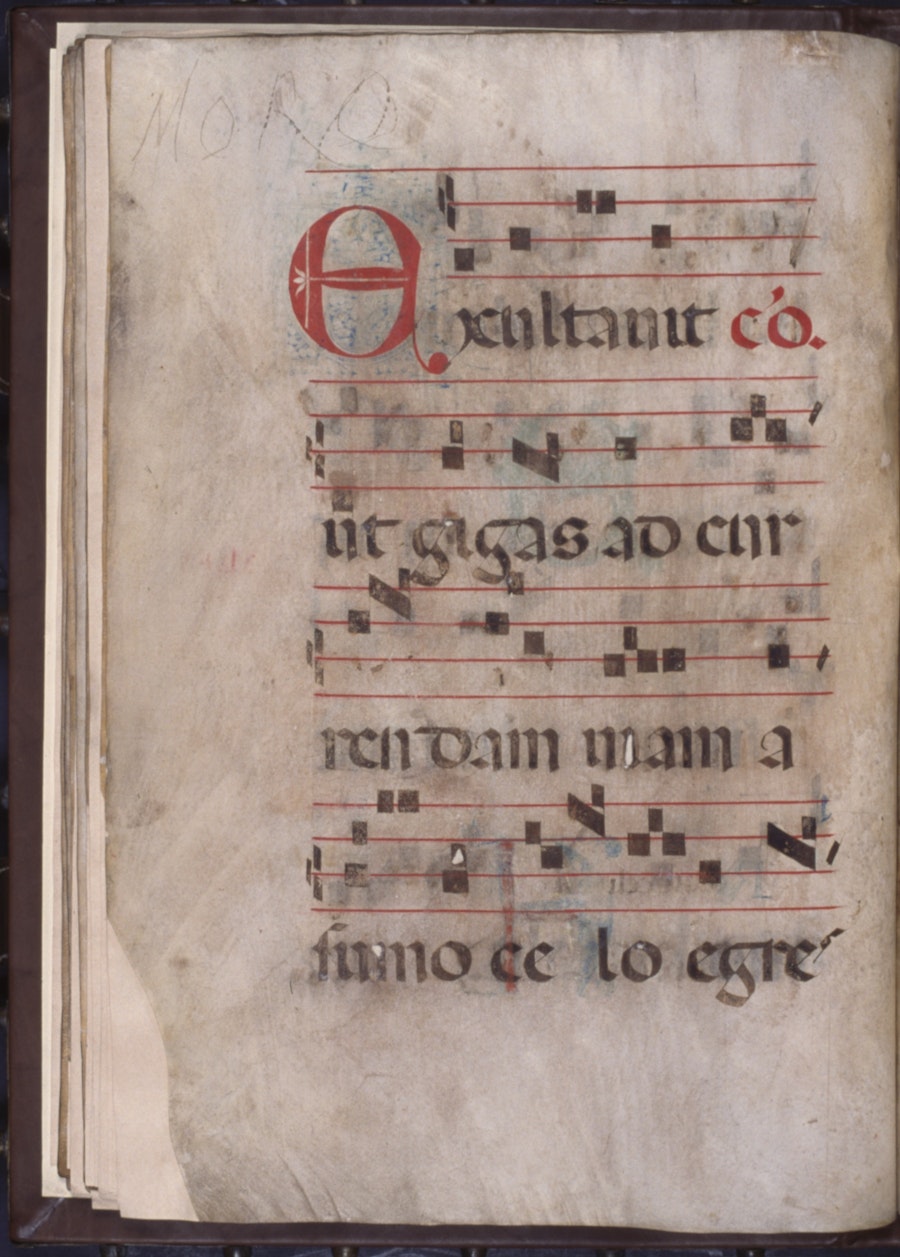 MORO
Exultauit c̃o.
uit gigas ad cur
rendam uiam a
summo ce lo egres